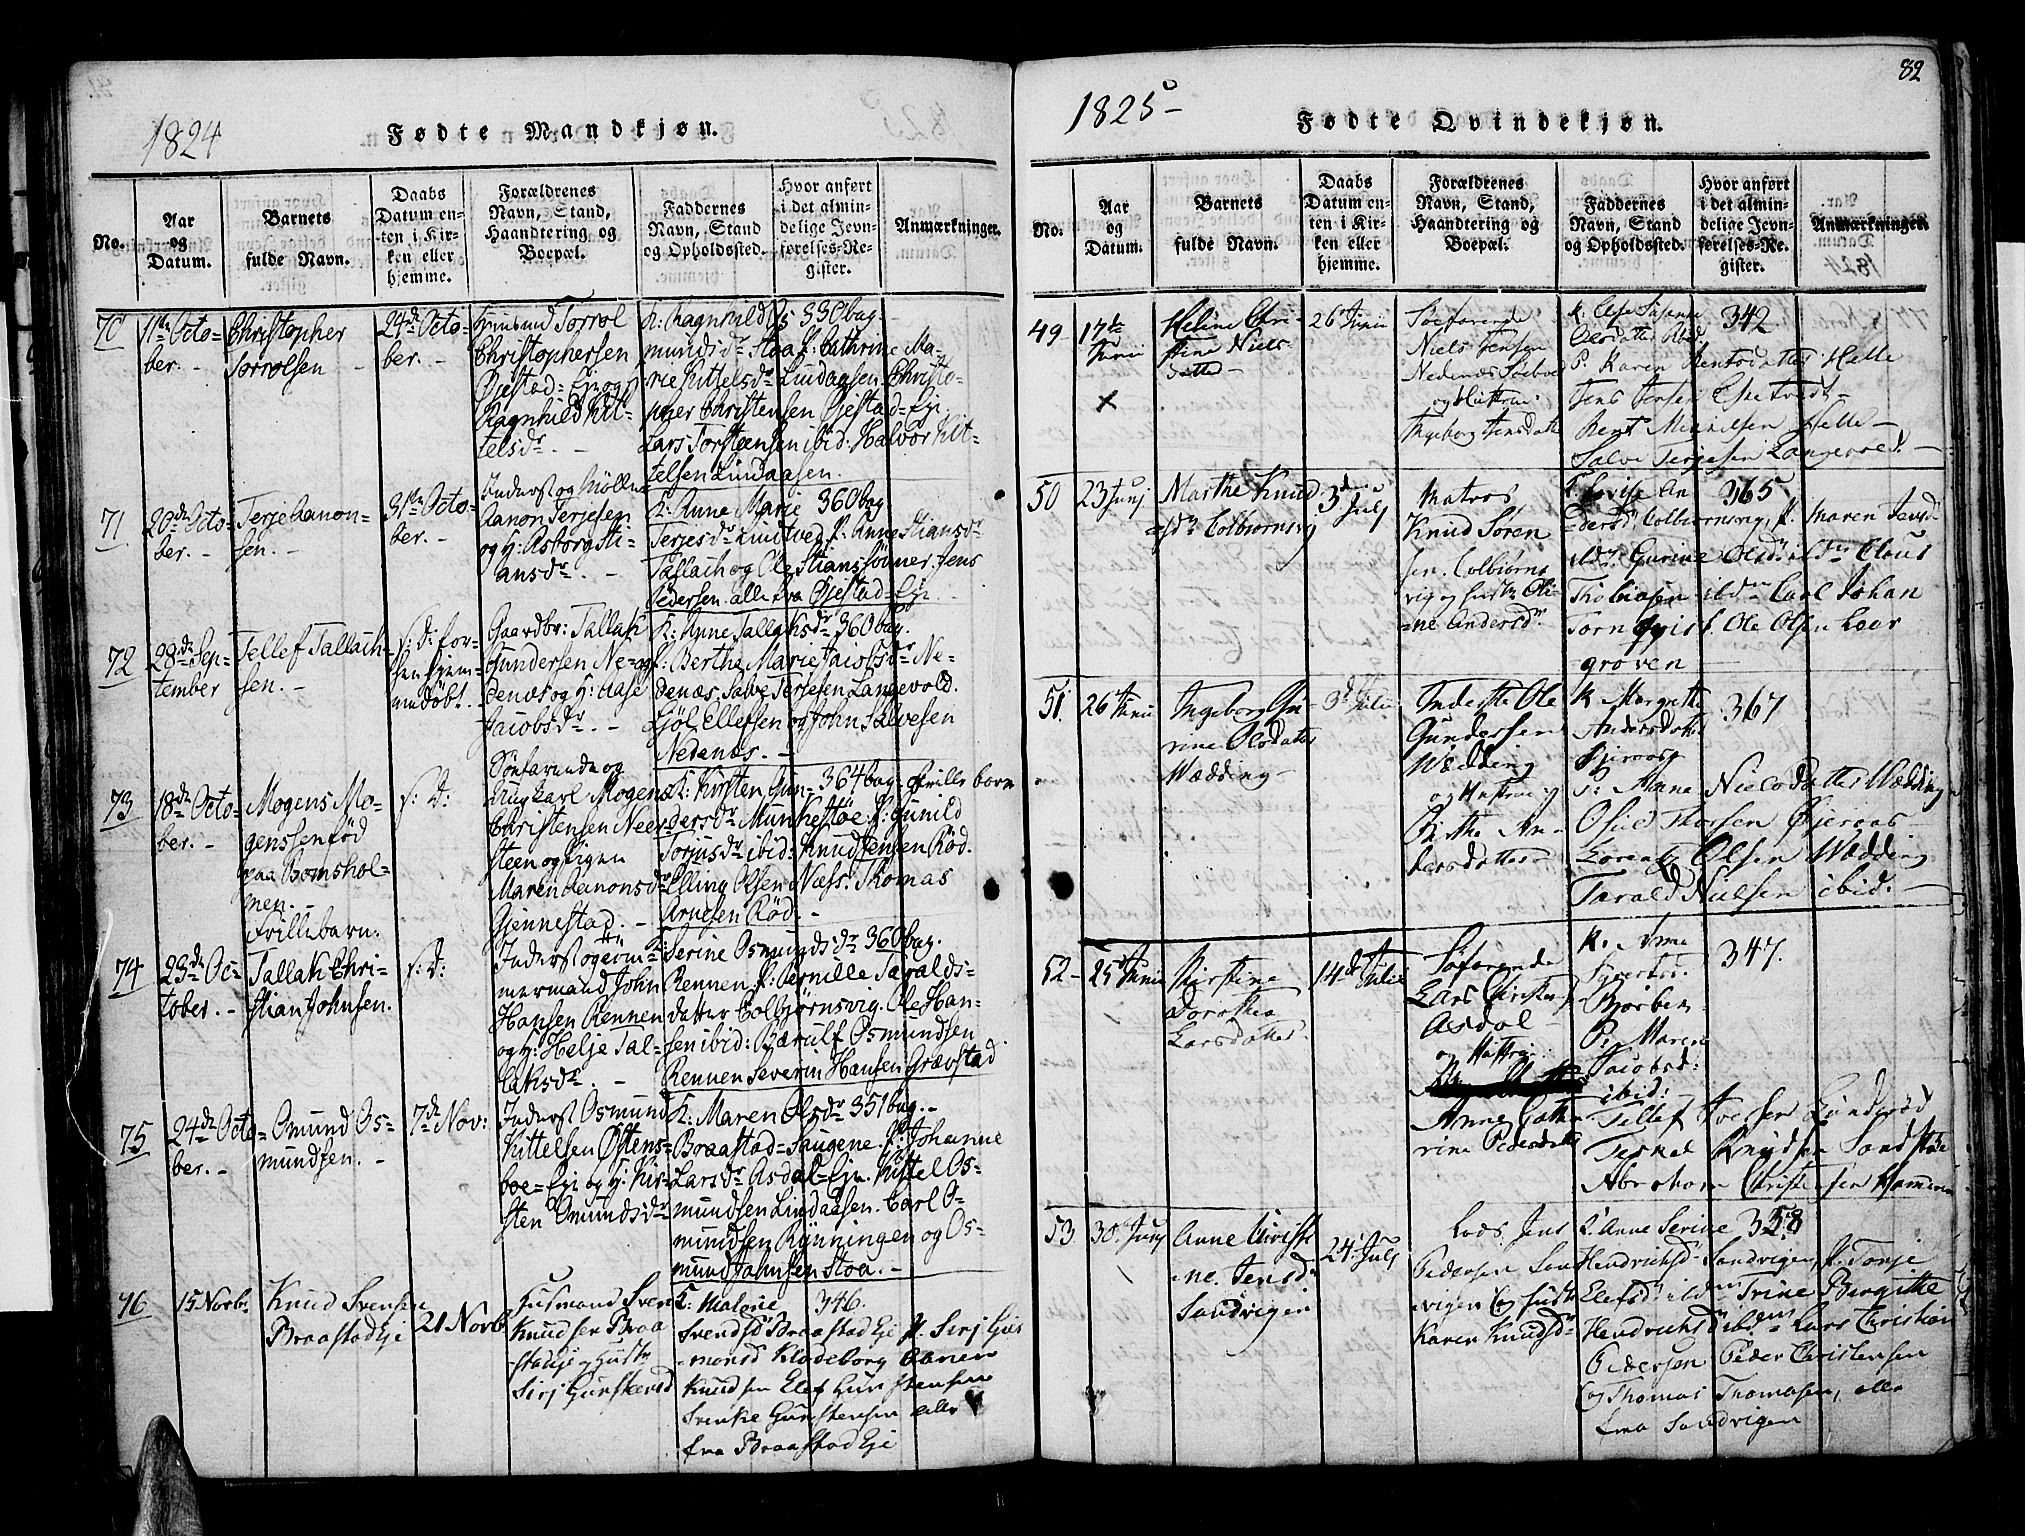 1824
Fødte Mandkjøn.
No.
Aar
og
Datum.
Barnets
fulde Navn.
Daabs
Datum en-
ten i Kir-
ken eller
hjemme.
Forældrenes
Navn, Stand,
Haandtering og
Boepæl.
Faddernes
Navn, Stand
og Opholdssted.
Hvor anført
i det almin-
delige Jevn-
førelses-Re-
gister.
Anmærkninger.
70
11te Octo-
ber. -
Christopher
Torrolsen
24de Octo-
ber. -
Torrol
Christophersen
Øjestad-Eje og
Ragnhild Kit-
telsdr. -
K: Ragnhild 330 bag.
mundsdr Stoa f: Cathrine Ma-
rie Kittelsdr Lindaasen. Christo-
pher Christensen Øjestad-Eje
Lars Torsteensen ibid: Halvor Kit-
telsen Lindaasen.
71
20de Octo-
ber. -
Terje Aanon-
sen. -
31te Octo-
ber. -
Inderst og Møller
Aanon Terjesen
og H: Asborg Sti-
ansdr. -
K: Anne Marie 360 bag
Terjesdr f: Anne Stiansdr
Tallach og Ole Stians sønner. Jens
Pedersen. alle fra Øjestad-Eje.
72
28de Sep-
tember
Tellef Tallach-
sen. -
s: D: for-
hen hjem-
medøbt.
Gaardbr: Tallak
Gundersen Ne-
denæs og H: Aase
Jacobsdr. -
K: Anne Tallaksdr 360 bag.
f: Berthe Marie Jacobsdr Ne-
denæs, Salve Terjesen Langevold.
Gjøl Ellefsen og John Salvesen
Nedenæs. -
73
18de Octo-
ber. -
Mogens Mo-
genssen fød
paa Bomshol-
men. -
Frillebarn.
s: D:
Søefarende og
Ungkarl Mogens
Christensen Neer-
steen og Pigen
Maren Aanonsdr
Gjennestad. -
K: Kirsten Gun- 364 bag. Frillebarn
dersdr Munkestøe. f: Gunild
Torjusdr ibid: Knud Jensen Rød.
Elling Olsen Næss. Thomas
Arnesen Rød. -
74
23de Oc-
tober. -
Tallak Chri-
stian Johnsen.
s: D:
Inderst og Tøm-
mermand John
Hansen Rennen
og H: Helje Tal-
laksdr. -
K: Serine Osmundsdr 360 bag.
Rennen f: Pernille Taralds-
datter Colbjørnsvig. Ole Han-
sen ibid: Bærulf Osmundsen
Rennen Severin Hansen Grævstad
75
24de Octo-
ber. -
Omund Os-
mundsen. -
7de Nov:
Inderst Osmund
Kittelsen Østens-
boe-Eje og H: Kir-
sten Omundsdr
K: Maren Olsdr 351 bag. -
Braastad-Saugene. f: Johanne
Larsdr Asdal-Eje. Kittel Os-
mundsen Lindaasen. Carl O-
mundsen Rønningen og Os-
mund Johnsen Stoa. -
76
15 Novbr
Knud Svensen
Braastad Eje
21 Novb
Husmand Sven
Knudsen Braa
stadeje og Hustr
Siri Gunstensd
K: Malene 346.
Svendsdr Braastad Eje P. Siri Gus
monsd Klodeborg Aanen
Knudsen Elef Gunstensen
Svenke Gunstensen alle
fra Braastad Eje
82
1825 -
Fødte Qvindekjøn.
No.
Aar
og
Datum.
Barnets
fulde Navn.
Daabs
Datum en-
ten i Kir-
ken eller
hjemme.
Forældrenes
Navn, Stand,
Haandtering og
Boepæl.
Faddernes
Navn, Stand
og Opholdssted.
Hvor anført
i det almin-
delige Jevn-
førelses-Re-
gister.
Anmærkninger.
49
17te
Junii
Helene Chri-
stine Niels-
datter -
26 Junii
Søefarende
Niels Jensen
Nedenæs
og Hustrue
Ingeborg Jensdatter
K. Else Susanne 342
Olsdatter ibid.
P. Karen Bentsdatter Helle
Jens Jensen Espetvedt -
Bent Helle -
Salve Terjesen Langevold. -
50
23 Junj
Marthe Knud
sdr Colbiørnsvig
3 Julj
Matros
Knud Søren
sen. Colbiørns
vig og Hustr Oli-
ne Andersdr
K. Lovise An 365
dersdr Colbiornsvig, f. Maren Jensd
ibdm Gurine Olsdr ibdm Claus
Thobiasen ibdm Carl Johan
Tornqvist. Ole Olsen Løvr
groven
51.
26 Junii
Ingeborg Gu-
rine Olsdatter
Wædding -
3d Julii
Inderste Ole
Gundersen
Wædding
og Hustrue
Birthe An-
dersdatter -
K Margrethe 367
Andersdatter
P. Anne Nielsdatter Wædding
Osuld Thorsen Øjeraas
Lorentz Olsen Wædding
Tarald Nielsen ibid. -
52 -
25 Junii
Kirstine
Dorothea
Larsdatter
14de Julii
Søfarende
Lars Christens
Asdal -
og Hustrue
Anne Cathe
rine Pedersdatter
K. Anne 347.
Bjorben
P. Maren
Jacobsd:
ibid:
Tellef Ivessen Lunderød
Terkel Knudsen Sandstøe
Abraham Christensen
53
30. Junj
Anne Christi
ne. Jensd
Sandvigen
24 Julj
Lods. Jens
Pedersen San
vigen Og Hustr
Karen Knudsdr
K. Anne Serine 358
Hendrichsd Sandvigen, f. Tonje
Elefsd ibdm Trine Birgitte
Hendrichsd ibdm Lars Christian
Pedersen Peder Christensen
Og Thomas Thomasen, alle
fra Sandvigen